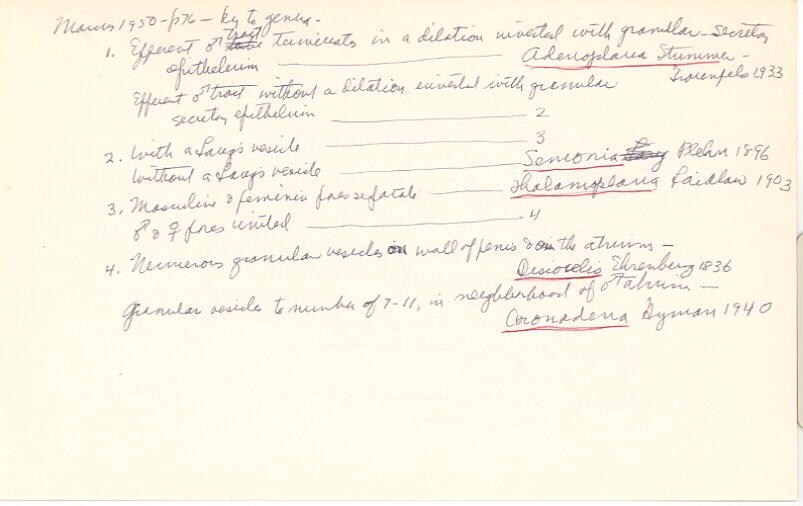 Marcus 1950 - p76 - key to genera -
1. Efferent ♂ tract terminates in a dilation invested with granular - secretory
epithelium — Adenoplana Stummer -
Traunfels 1933
Efferent ♂ tract without a dilation invested with granular
secretory epithelium — 2
2. With a Lang's vesicle — 3
Without a Lang's vesicle — Semonia Plehn 1896
3. Masculine & feminin pores separate — Thalamoplana Laidlaw 1903
♂ & ♀ pores united — 4
4. Numerous granular vesicles on wall of penis & on the atrium —
Discocelis Ehrenberg 1836
Granular vesicles to number of 7-11, in neighborhood of ♂ atrium —
Coronadena Hyman 1940